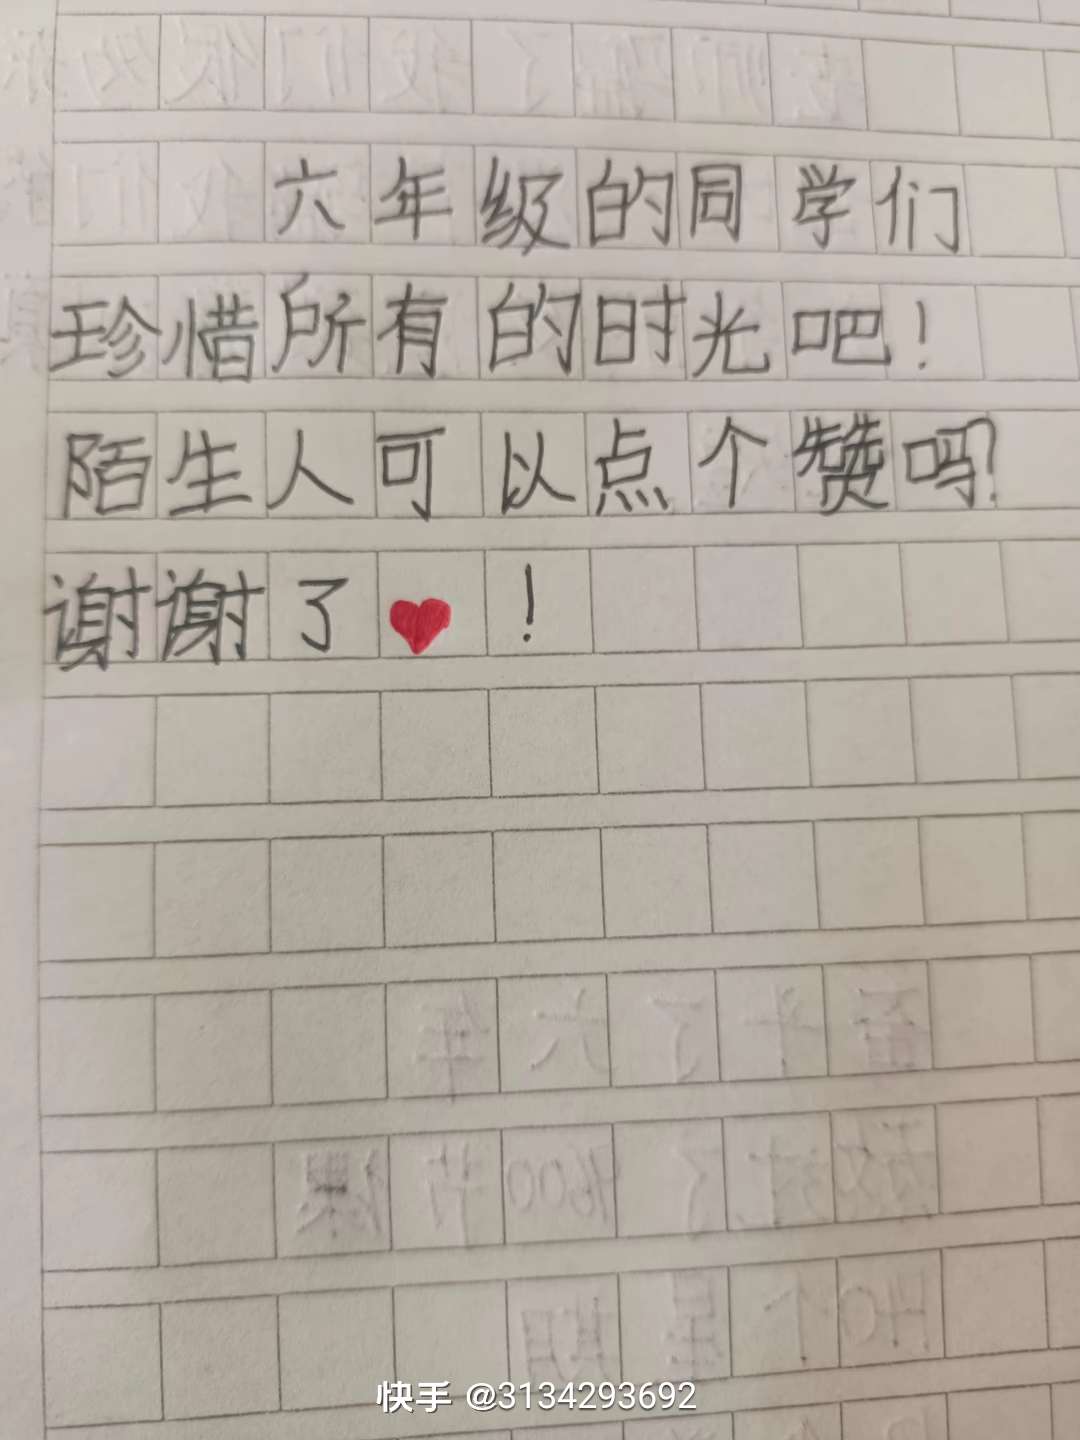 六年级的同学们
珍惜所有的时光吧！
陌生人可以点个赞吗？
谢谢了❤！
快手 @3134293692